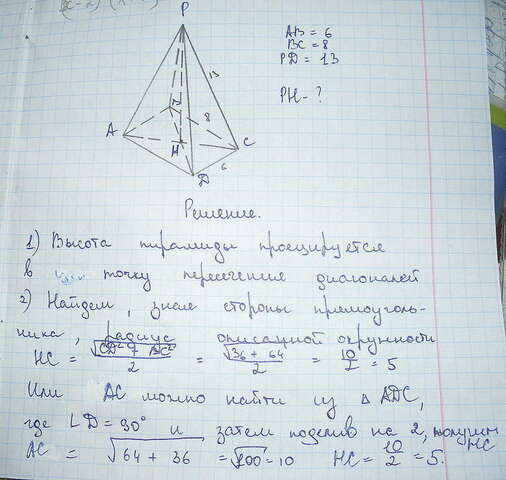 P
AB = 6
BC = 8
PD = 13
PH - ?
13
8
A
H
C
6
D
Решение.
1) Высота пирамиды проецируется
в точку пересечения диагоналей
2) Найдем, зная стороны прямоуголь-
ника, радиус описанной окружности
HC = √(CD² + BC²)/2 = √(36 + 64)/2 = 10/2 = 5
Или AC можно найти из △ ADC,
где ∠D = 90° и затем поделив на 2, получим HC
AC = √(64 + 36) = √100 = 10 HC = 10/2 = 5.